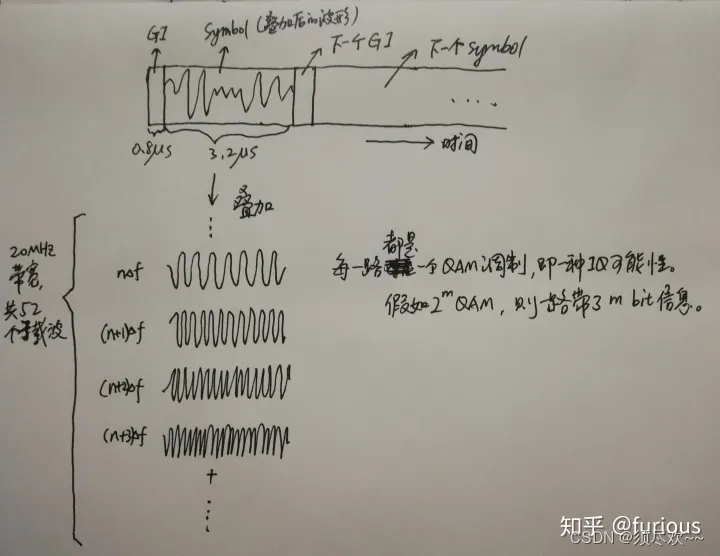 GI
Symbol(叠加后的波形)
下一个GI
下一个symbol
....
0.8μs
3.2μs
时间
叠加
20MHz
带宽,
共52
个子载波
nΔf
(n+1)Δf
(n+2)Δf
(n+3)Δf
+
都是
每一路一个QAM调制,即一种IQ可能性。
假如2^m QAM,则一路带了m bit信息。
知乎 @furious
CSDN @须尽欢~~